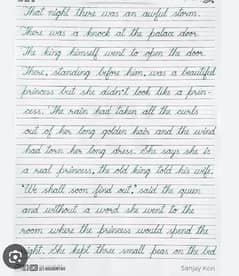 That night there was an awful storm.
There was a knock at the palace door.
The king himself went to open the door.
There, standing before him, was a beautiful
princess but she didn't look like a prin-
cess. The rain had taken all the curls
out of her long golden hair and the wind
had torn her long dress. She says she is
a real princess, the old king told his wife.
"We shall soon find out," said the queen
and without a word she went to the
room where the princess would spend the
night. She kept three small peas on the bed
Sanjay Kori